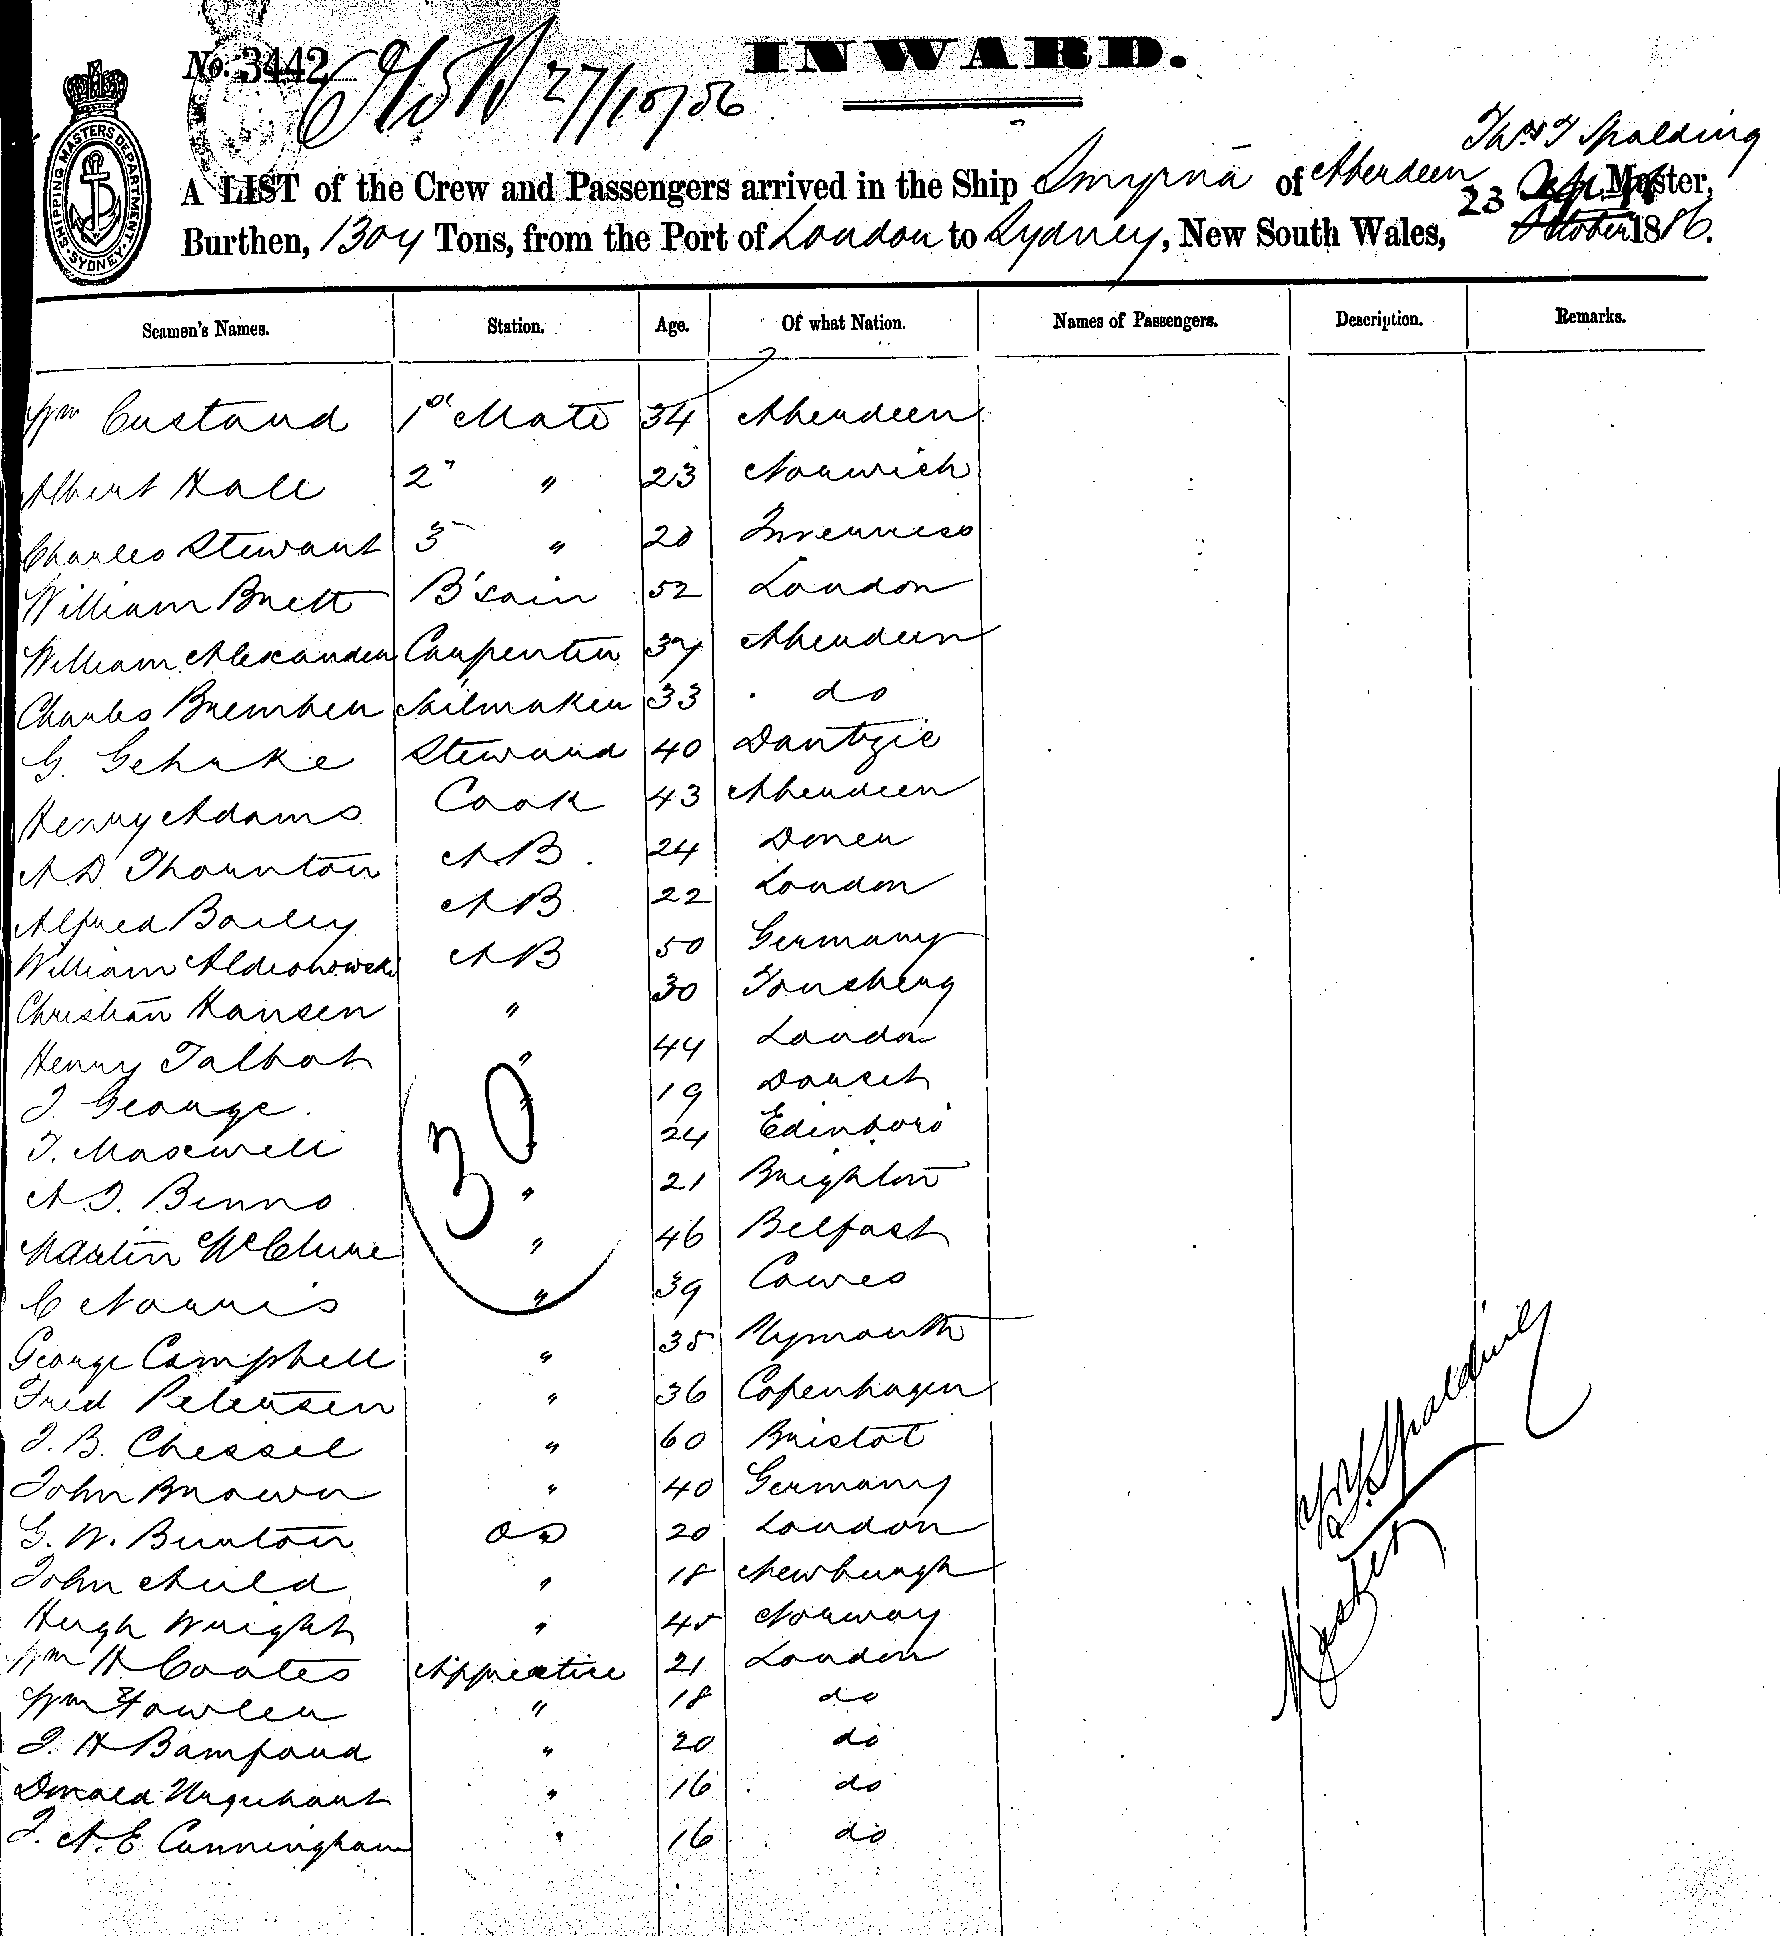 No. 3442 INWARD.
27/10/86
SHIPPING MASTERS DEPARTMENT. SYDNEY.
Thos T Spalding
A LIST of the Crew and Passengers arrived in the Ship Smyrna of Aberdeen Master,
Burthen, 1304 Tons, from the Port of London to Sydney, New South Wales, 23 October 1886.
Seamen's Names. Station. Age. Of what Nation. Names of Passengers. Description. Remarks.
Wm Custard 1st Mate 34 Aberdeen
Albert Hall 2" " 23 Norwich
Charles Stewart 3 " 20 Inverness
William Brett B'sain 52 London
William Alexander Carpenter 37 Aberdeen
Charles Brember Sailmaker 33 do
G. Gehrke Steward 40 Dantzic
Henry Adams Cook 43 Aberdeen
A D Thornton AB. 24 Dover
Alfred Bailey AB 22 London
William AB 50 Germany
Christian Hansen " 30 Tonsberg
Henry Talbot " 44 London
J. George. " 19 Dorset
T. Maxwell " 24 Edinboro
A J. Binns " 21 Brighton
30
Martin McClure " 46 Belfast
C Norris " 39 Cowes
George Campbell " 35 Plymouth
Fred Petersen " 36 Copenhagen
J. B. Chessel " 60 Bristol
John Brown " 40 Germany
G. W. Burton OS 20 London
John Auld " 18 Newburgh
Hugh Wright " 45 Norway
Wm H Coates Apprentice 21 London
Wm Fowler " 18 do
J. H Bamford " 20 do
Donald Urquhart " 16 do
J. A. E Cunningham " 16 do
T. T. Spalding
Master